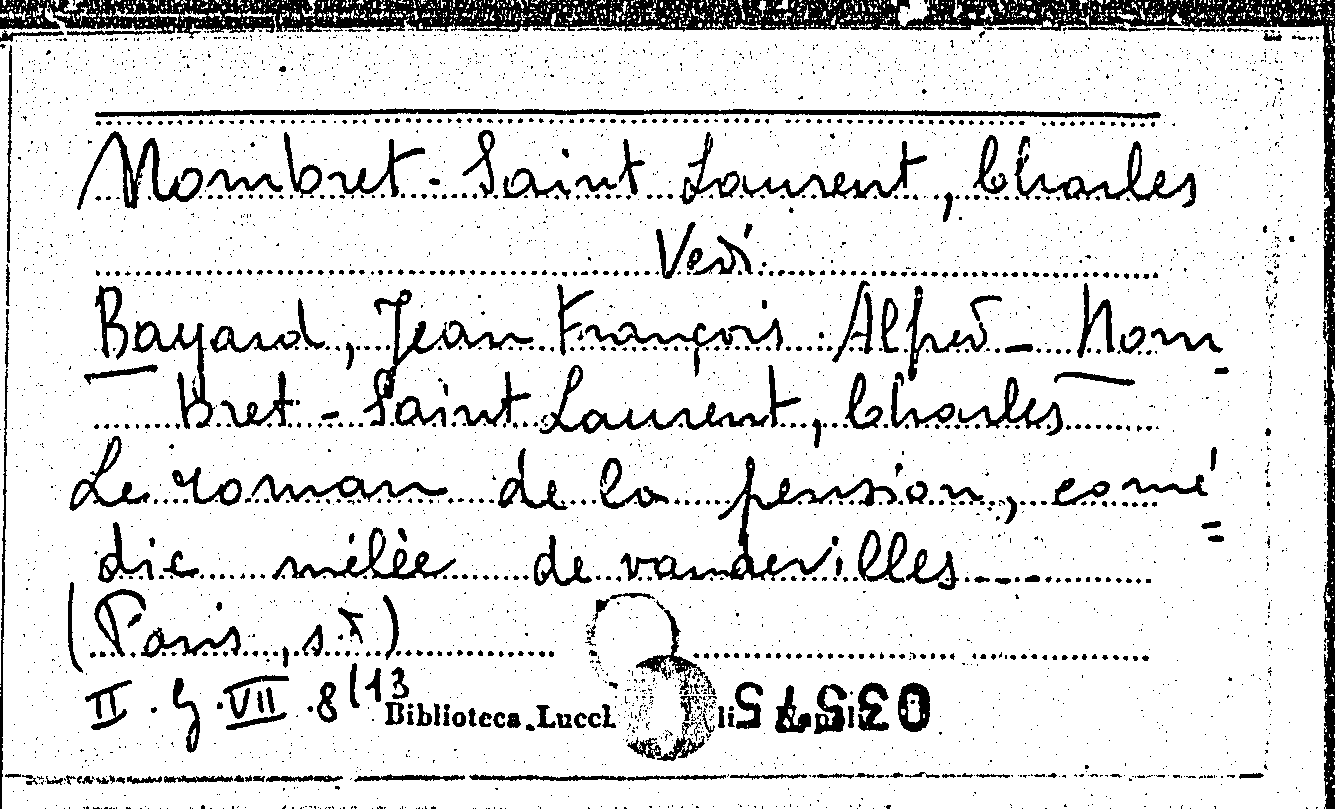 Nombret-Saint Laurent, Charles
Vedi
Bayard, Jean François Alfred - Nom-
bret-Saint Laurent, Charles
Le roman de la pension, comé=
die mêlée de vaudevilles----
(Paris, s.d)
II. G. VII. 8(13
Biblioteca Lucch li